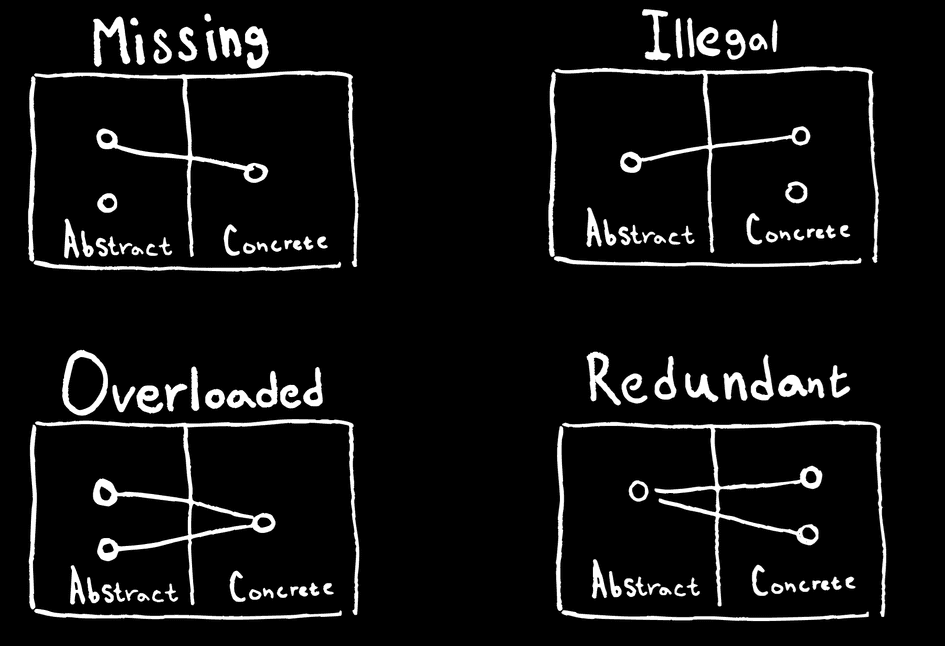 Missing
Abstract Concrete
Illegal
Abstract Concrete
Overloaded
Abstract Concrete
Redundant
Abstract Concrete